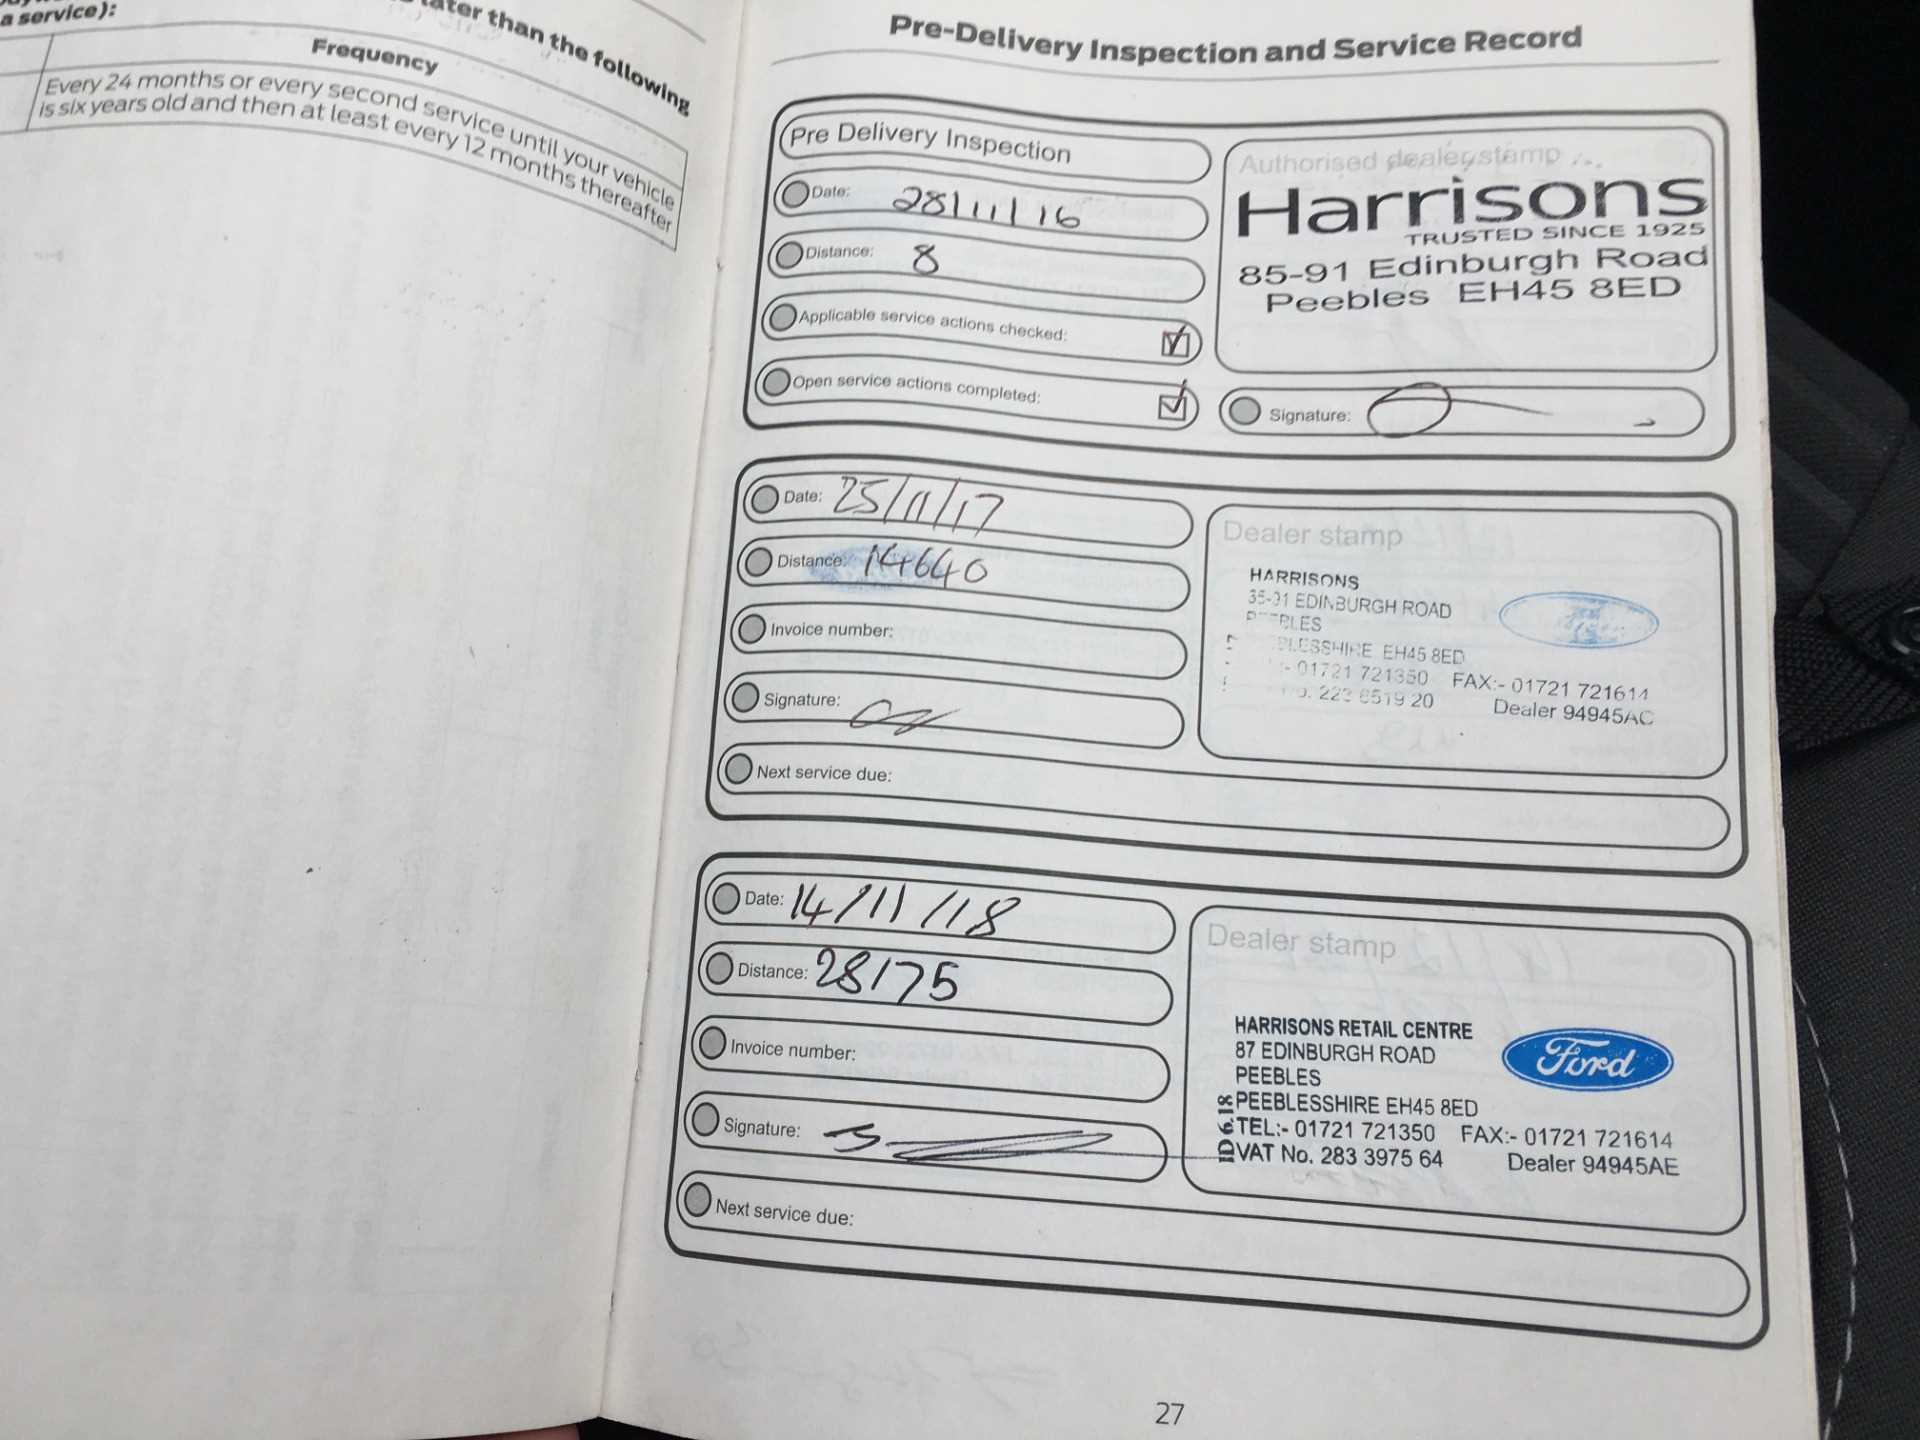 a service):
later than the following
Frequency
Every 24 months or every second service until your vehicle
is six years old and then at least every 12 months thereafter
Pre-Delivery Inspection and Service Record
Pre Delivery Inspection
Date: 28/11/16
Distance: 8
Applicable service actions checked:
Open service actions completed:
Authorised dealer stamp
Harrisons
TRUSTED SINCE 1925
85-91 Edinburgh Road
Peebles EH45 8ED
Signature:
Date: 25/11/17
Distance: 14640
Invoice number:
Signature:
Next service due:
Dealer stamp
HARRISONS
35-91 EDINBURGH ROAD
EH45 8ED
01721 721350 FAX:- 01721 721614
Dealer 94945AC
Date: 14/11/18
Distance: 28175
Invoice number:
Signature:
Next service due:
Dealer stamp
HARRISONS RETAIL CENTRE
87 EDINBURGH ROAD
PEEBLES
PEEBLESSHIRE EH45 8ED
TEL:- 01721 721350 FAX:- 01721 721614
VAT No. 283 3975 64 Dealer 94945AE
Ford
ID 6.18
27